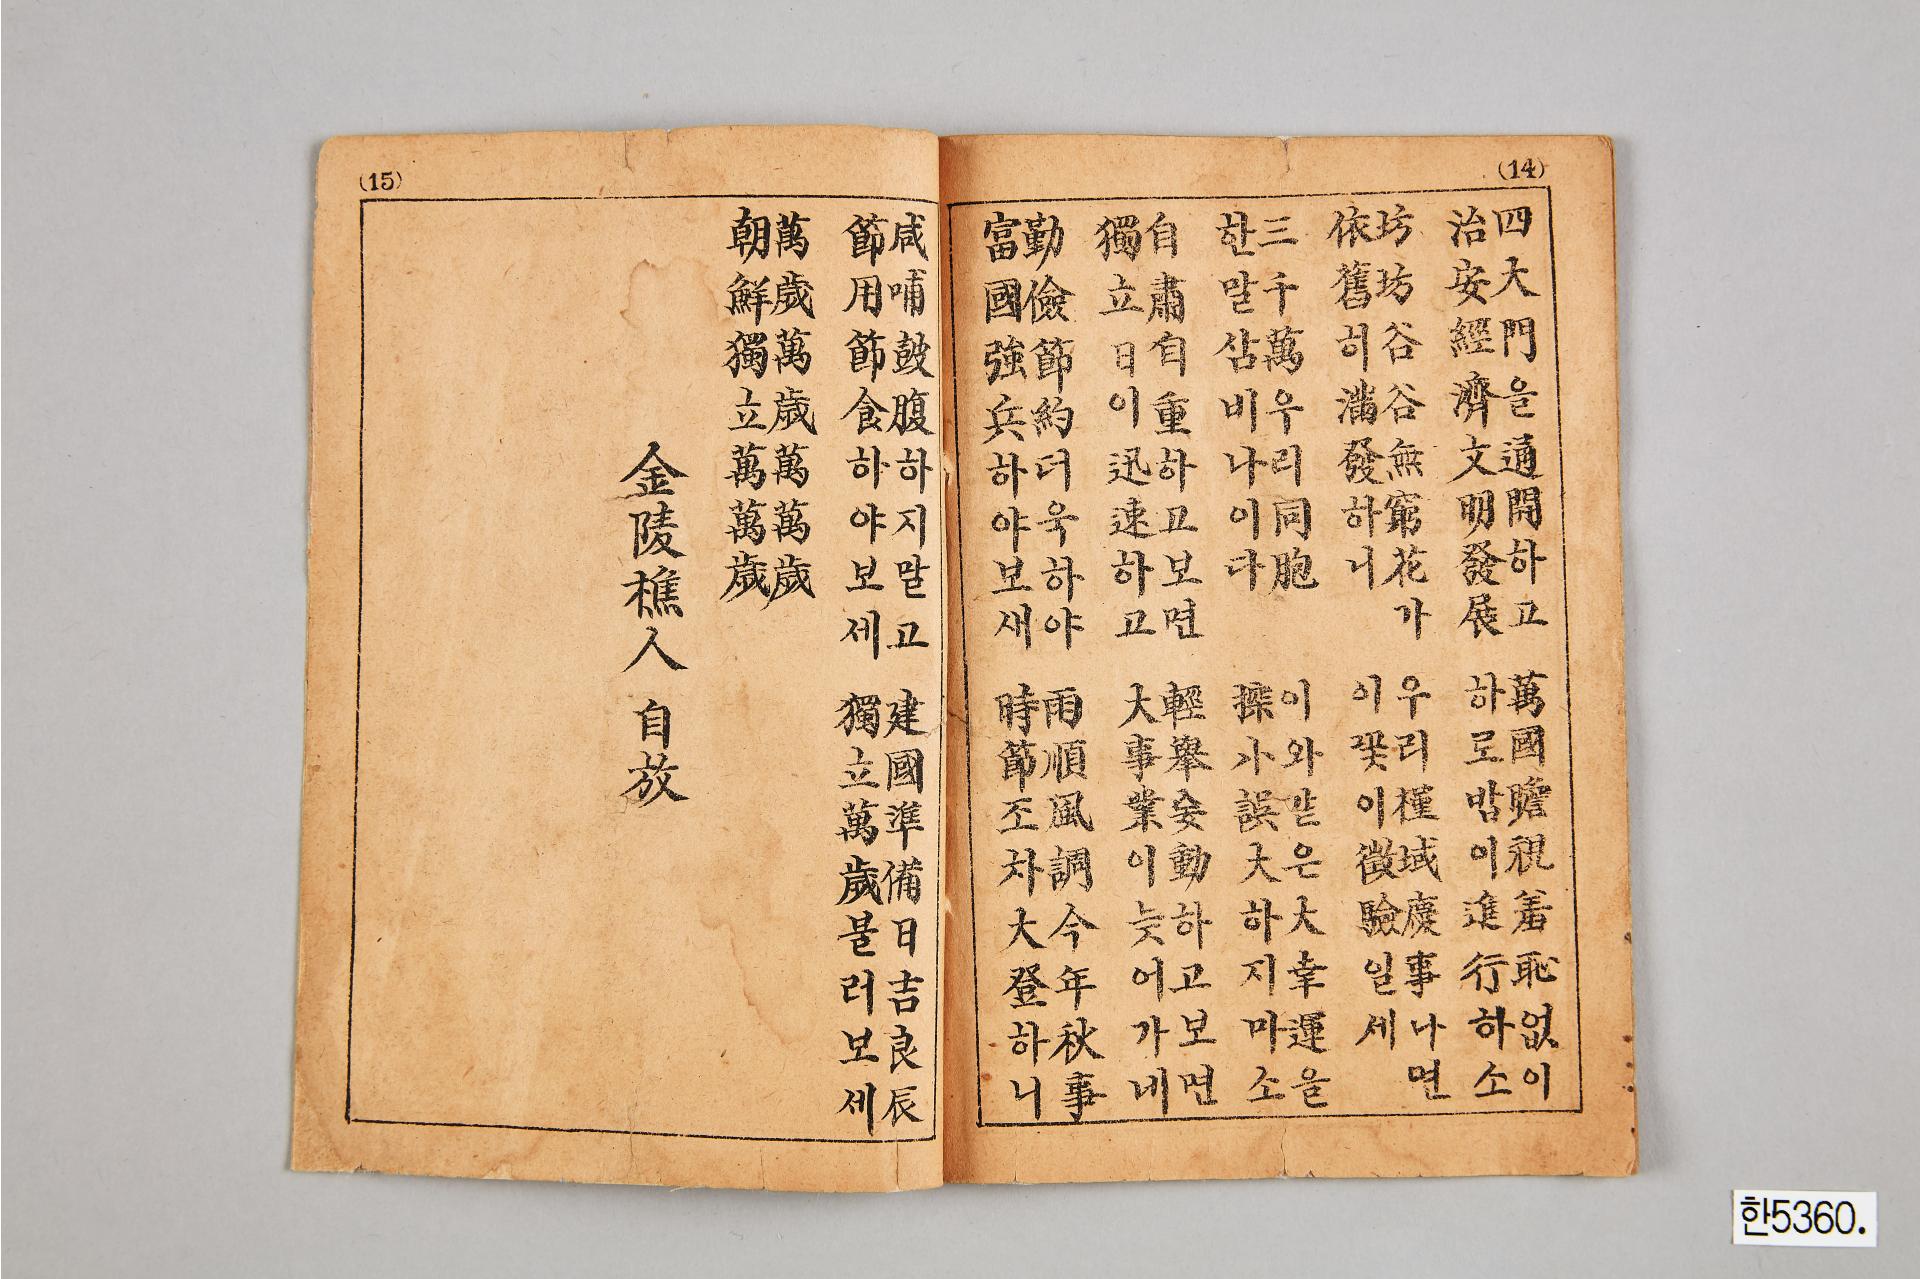 (14)
四大門을通開하고
治安經濟文明發展
萬國瞻視羞恥없이
하로밤이進行하소
坊坊谷谷無窮花가
依舊히滿發하니
우리槿域慶事나면
이꽃이徵驗일세
三千萬우리同胞
한말삼비나이다
이와같은大幸運을
操小誤大하지마소
自肅自重하고보면
獨立日이迅速하고
輕擧妄動하고보면
大事業이늦어가네
勤儉節約더욱하야
富國強兵하야보새
雨順風調今年秋事
時節조차大登하니
(15)
咸哺鼓腹하지말고
節用節食하야보세
建國準備日吉良辰
獨立萬歲불러보세
萬歲萬歲萬萬歲
朝鮮獨立萬萬歲
金陵樵人 自放
한5360.